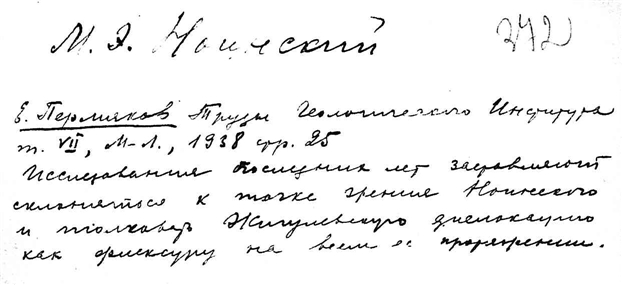 М. Э. Ноинский 272
Е. Пермяков Труды Геологического Института
т. VII, М-Л., 1938 стр. 25
Исследования последних лет заставляют
склоняться к точке зрения Ноинского
и толковать Жигулевскую дислокацию
как флексуру на всем ее протяжении.